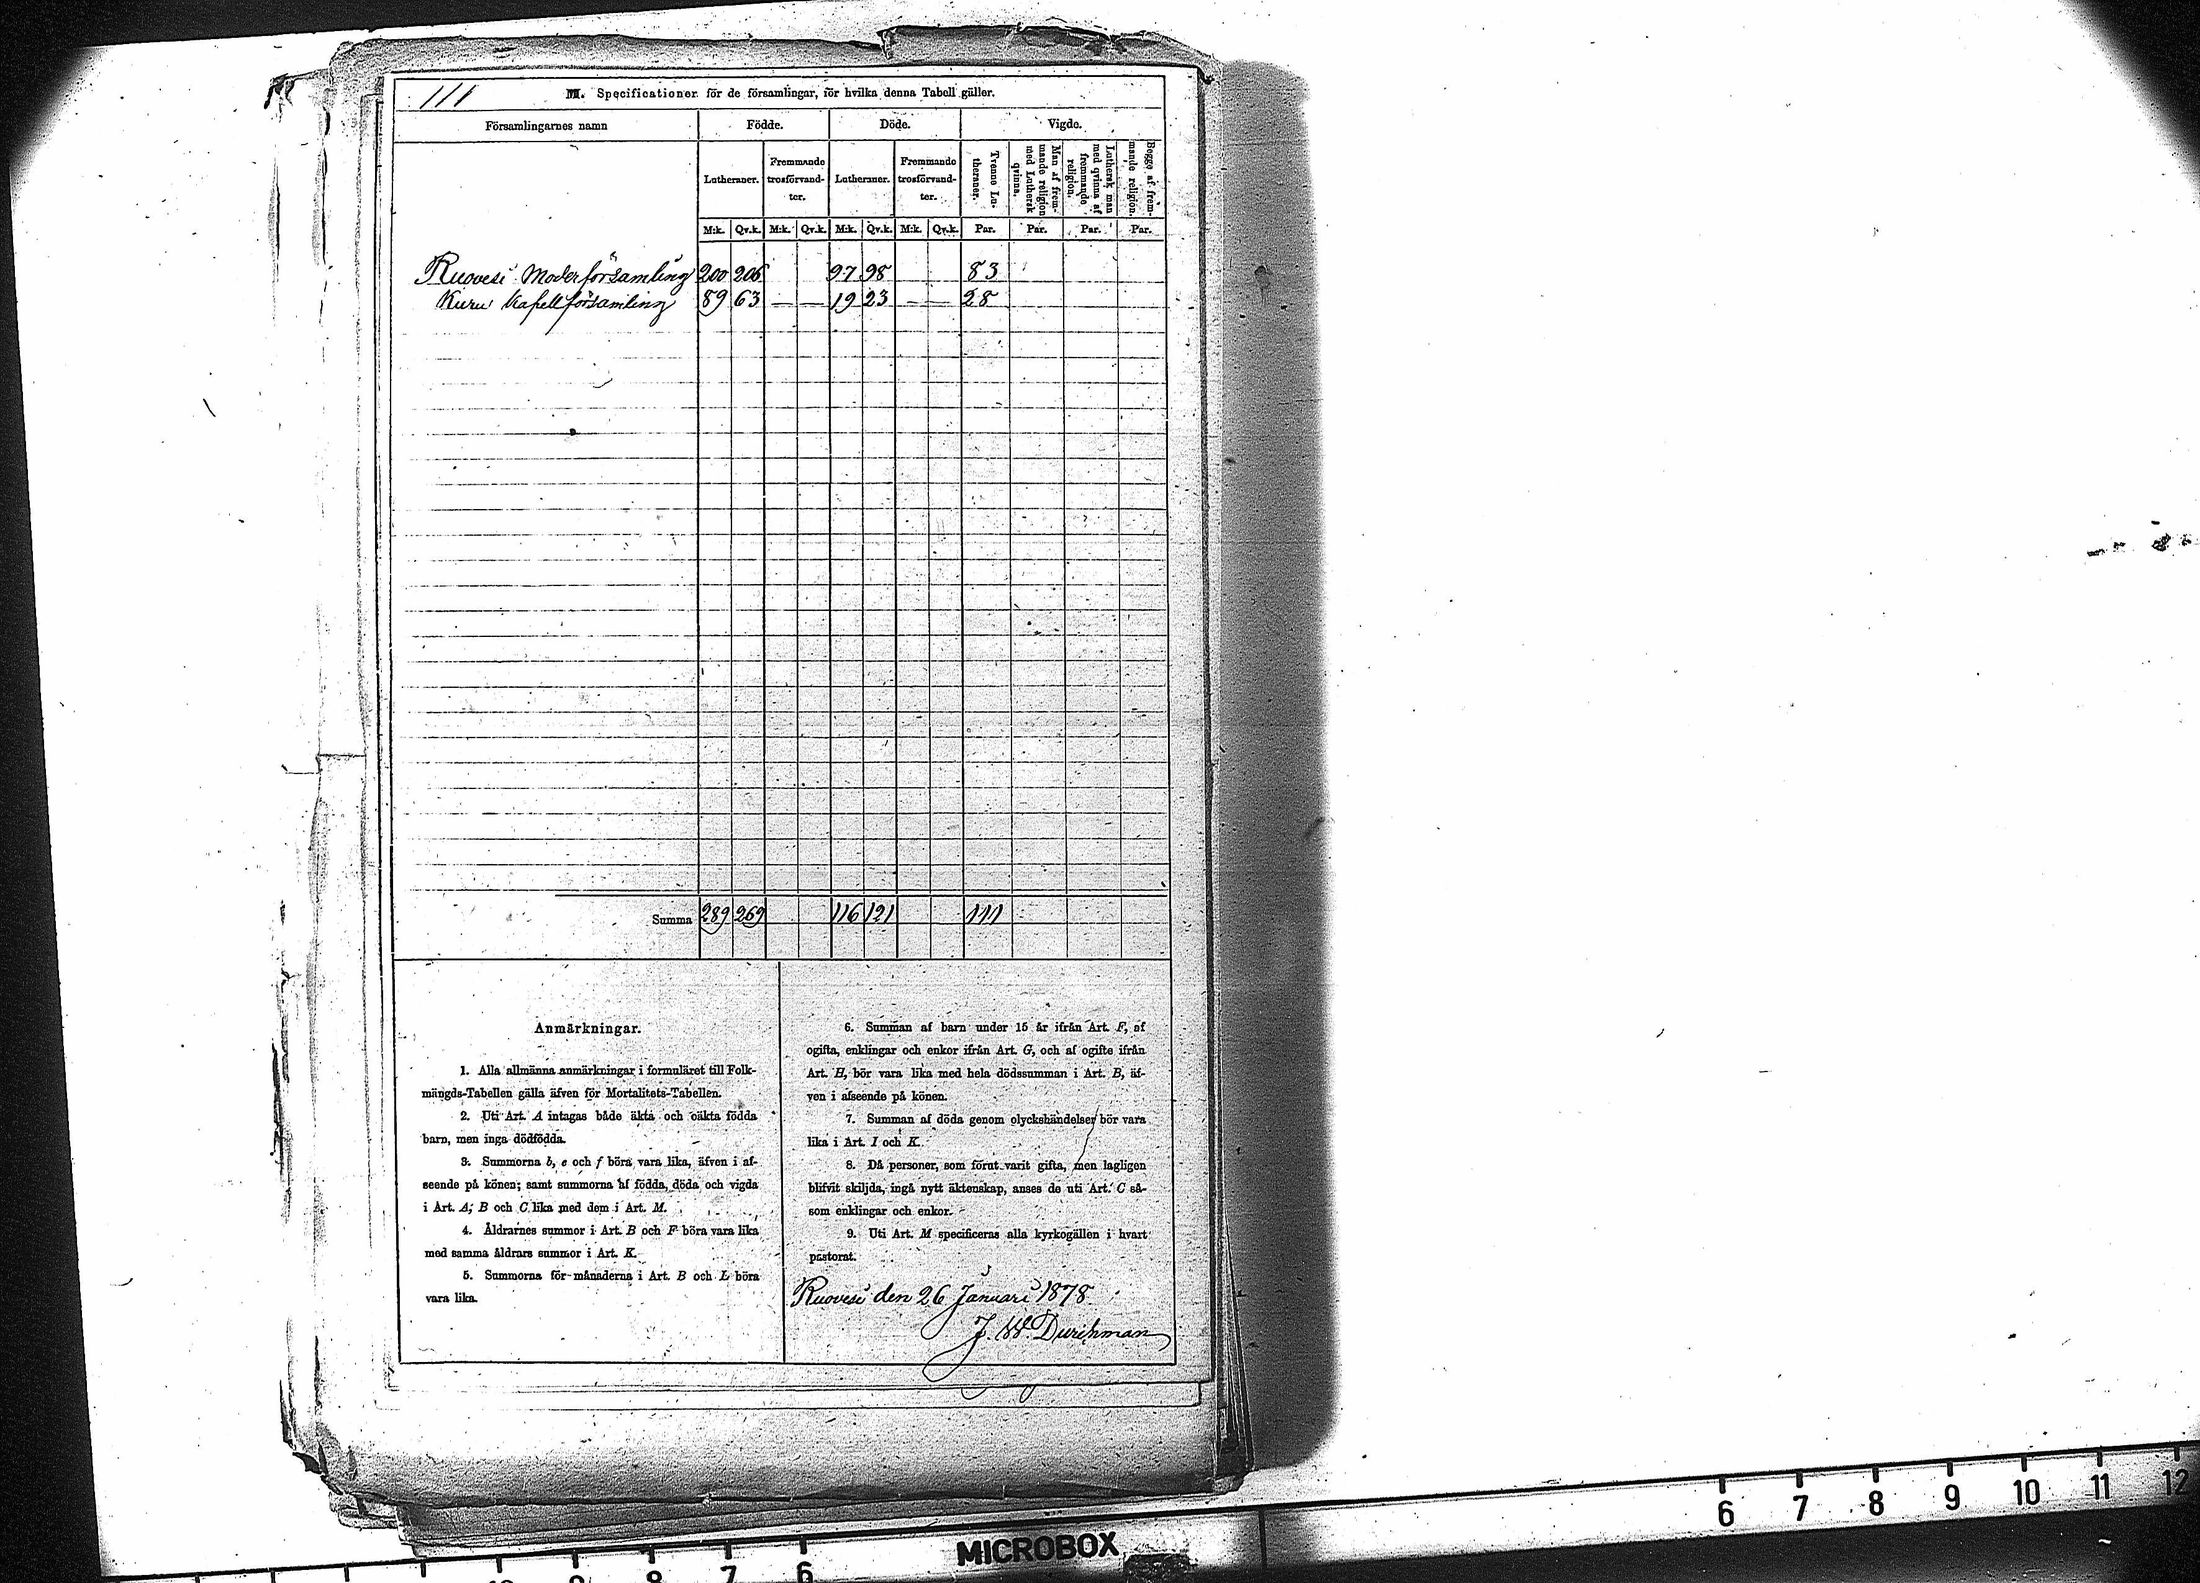 111
M. Specificationer för de församlingar, för hvilka denna Tabell gäller.
Församlingarnes namn Födde. Döde. Vigde.
Lutheraner. Fremmande trosförvand-ter. Lutheraner. Fremmande trosförvand-ter. Tvenne Lu-theraner. Man af frem-mande religion med Luthersk qvinna. Luthersk man med qvinna af fremmande religion. Begge af frem-mande religion.
M:k. Qv.k. M:k. Qv.k. M:k. Qv.k. M:k. Qv.k. Par. Par. Par. Par.
Ruovesi Moderförsamling 200 206 97 98 83
Kuru Kapellförsamling 89 63 — — 19 23 — — 28
Summa 289 269 116 121 111
Anmärkningar.
1. Alla allmänna anmärkningar i formuläret till Folk-
mängds-Tabellen gälla äfven för Mortalitets-Tabellen.
2. Uti Art. A intagas både äkta och oäkta födda
barn, men inga dödfödda.
3. Summorna b, e och f böra vara lika, äfven i af-
seende på könen; samt summorna af födda, döda och vigda
i Art. A, B och C lika med dem i Art. M.
4. Åldrarnes summor i Art. B och F böra vara lika
med samma åldrars summor i Art. K.
5. Summorna för månaderna i Art. B och L böra
vara lika.
6. Summan af barn under 15 år ifrån Art. F, af
ogifta, enklingar och enkor ifrån Art. G, och af ogifte ifrån
Art. H, bör vara lika med hela dödssumman i Art. B, äf-
ven i afseende på könen.
7. Summan af döda genom olyckshändelser bör vara
lika i Art. I och K.
8. Då personer, som förut varit gifta, men lagligen
blifvit skiljda, ingå nytt äktenskap, anses de uti Art. C så-
som enklingar och enkor.
9. Uti Art. M specificeras alla kyrkogällen i hvart
pastorat.
Ruovesi den 26 Januari 1878
J. W. Durchman
6 7 8 9 10 11 12
MICROBOX
10 9 8 7 6